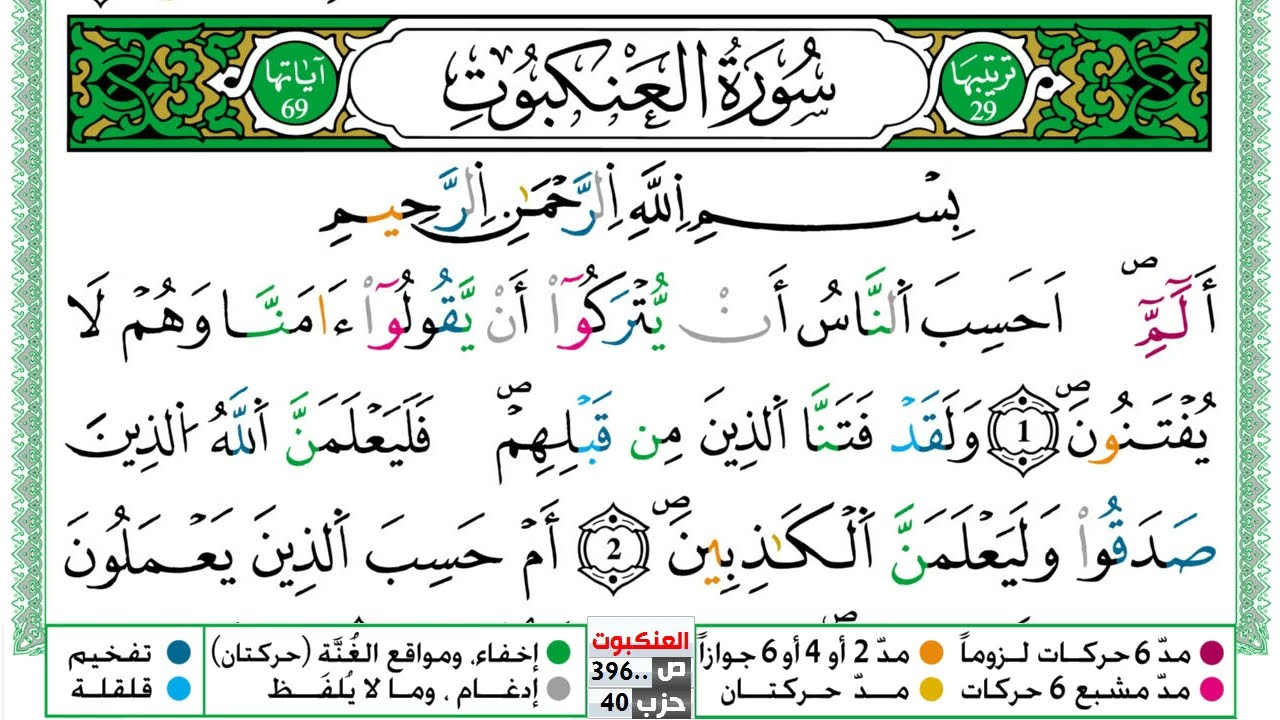 سُورَةُ العَنكبُوتِ
ترتيبها 29
آياتها 69
بِسْمِ اِللَّهِ اِلرَّحْمَٰنِ اِلرَّحِيمِ
أَلَٓمِّٓۖ اَحَسِبَ اَلنَّاسُ أَنْ يُّتْرَكُوٓاْ أَنْ يَّقُولُوٓاْ ءَامَنَّا وَهُمْ لَا
يُفْتَنُونَۖ 1 وَلَقَدْ فَتَنَّا اَلذِينَ مِن قَبْلِهِمْۖ فَلَيَعْلَمَنَّ اَللَّهُ اُلذِينَ
صَدَقُواْ وَلَيَعْلَمَنَّ اَلْكَٰذِبِينَۖ 2 أَمْ حَسِبَ اَلذِينَ يَعْمَلُونَ
مدّ 6 حركات لزوماً
مدّ 2 أو 4 أو 6 جوازاً
إخفاء، ومواقع الغُنَّة (حركتان)
تفخيم
مدّ مشبع 6 حركات
مدّ حركتان
إدغام ، وما لا يُلفَظ
قلقلة
العنكبوت
ص 396..
حزب 40